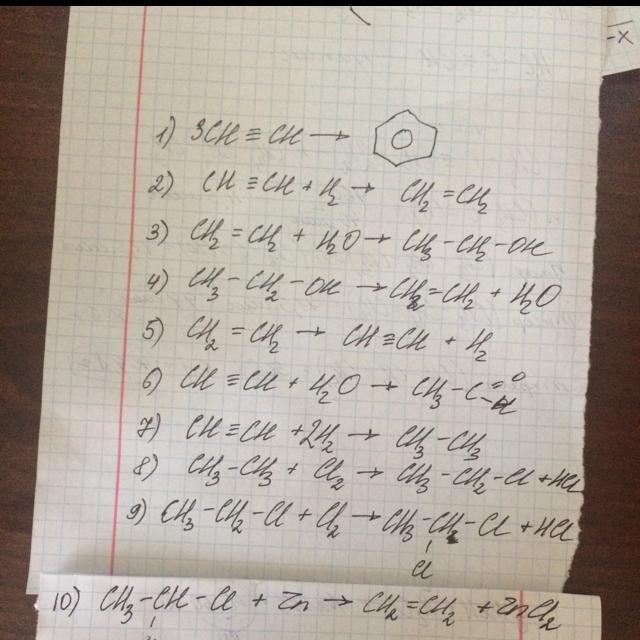 1) 3CH ≡ CH →
2) CH ≡ CH + H₂ → CH₂ = CH₂
3) CH₂ = CH₂ + H₂O → CH₃ – CH₂ – OH
4) CH₃ – CH₂ – OH → CH₂ = CH₂ + H₂O
5) CH₂ = CH₂ → CH ≡ CH + H₂
6) CH ≡ CH + H₂O → CH₃ – C = O – H
7) CH ≡ CH + 2H₂ → CH₃ – CH₃
8) CH₃ – CH₃ + Cl₂ → CH₃ – CH₂ – Cl + HCl
9) CH₃ – CH₂ – Cl + Cl₂ → CH₃ – CH – Cl + HCl
Cl
10) CH₃ – CH – Cl + Zn → CH₂ = CH₂ + ZnCl₂